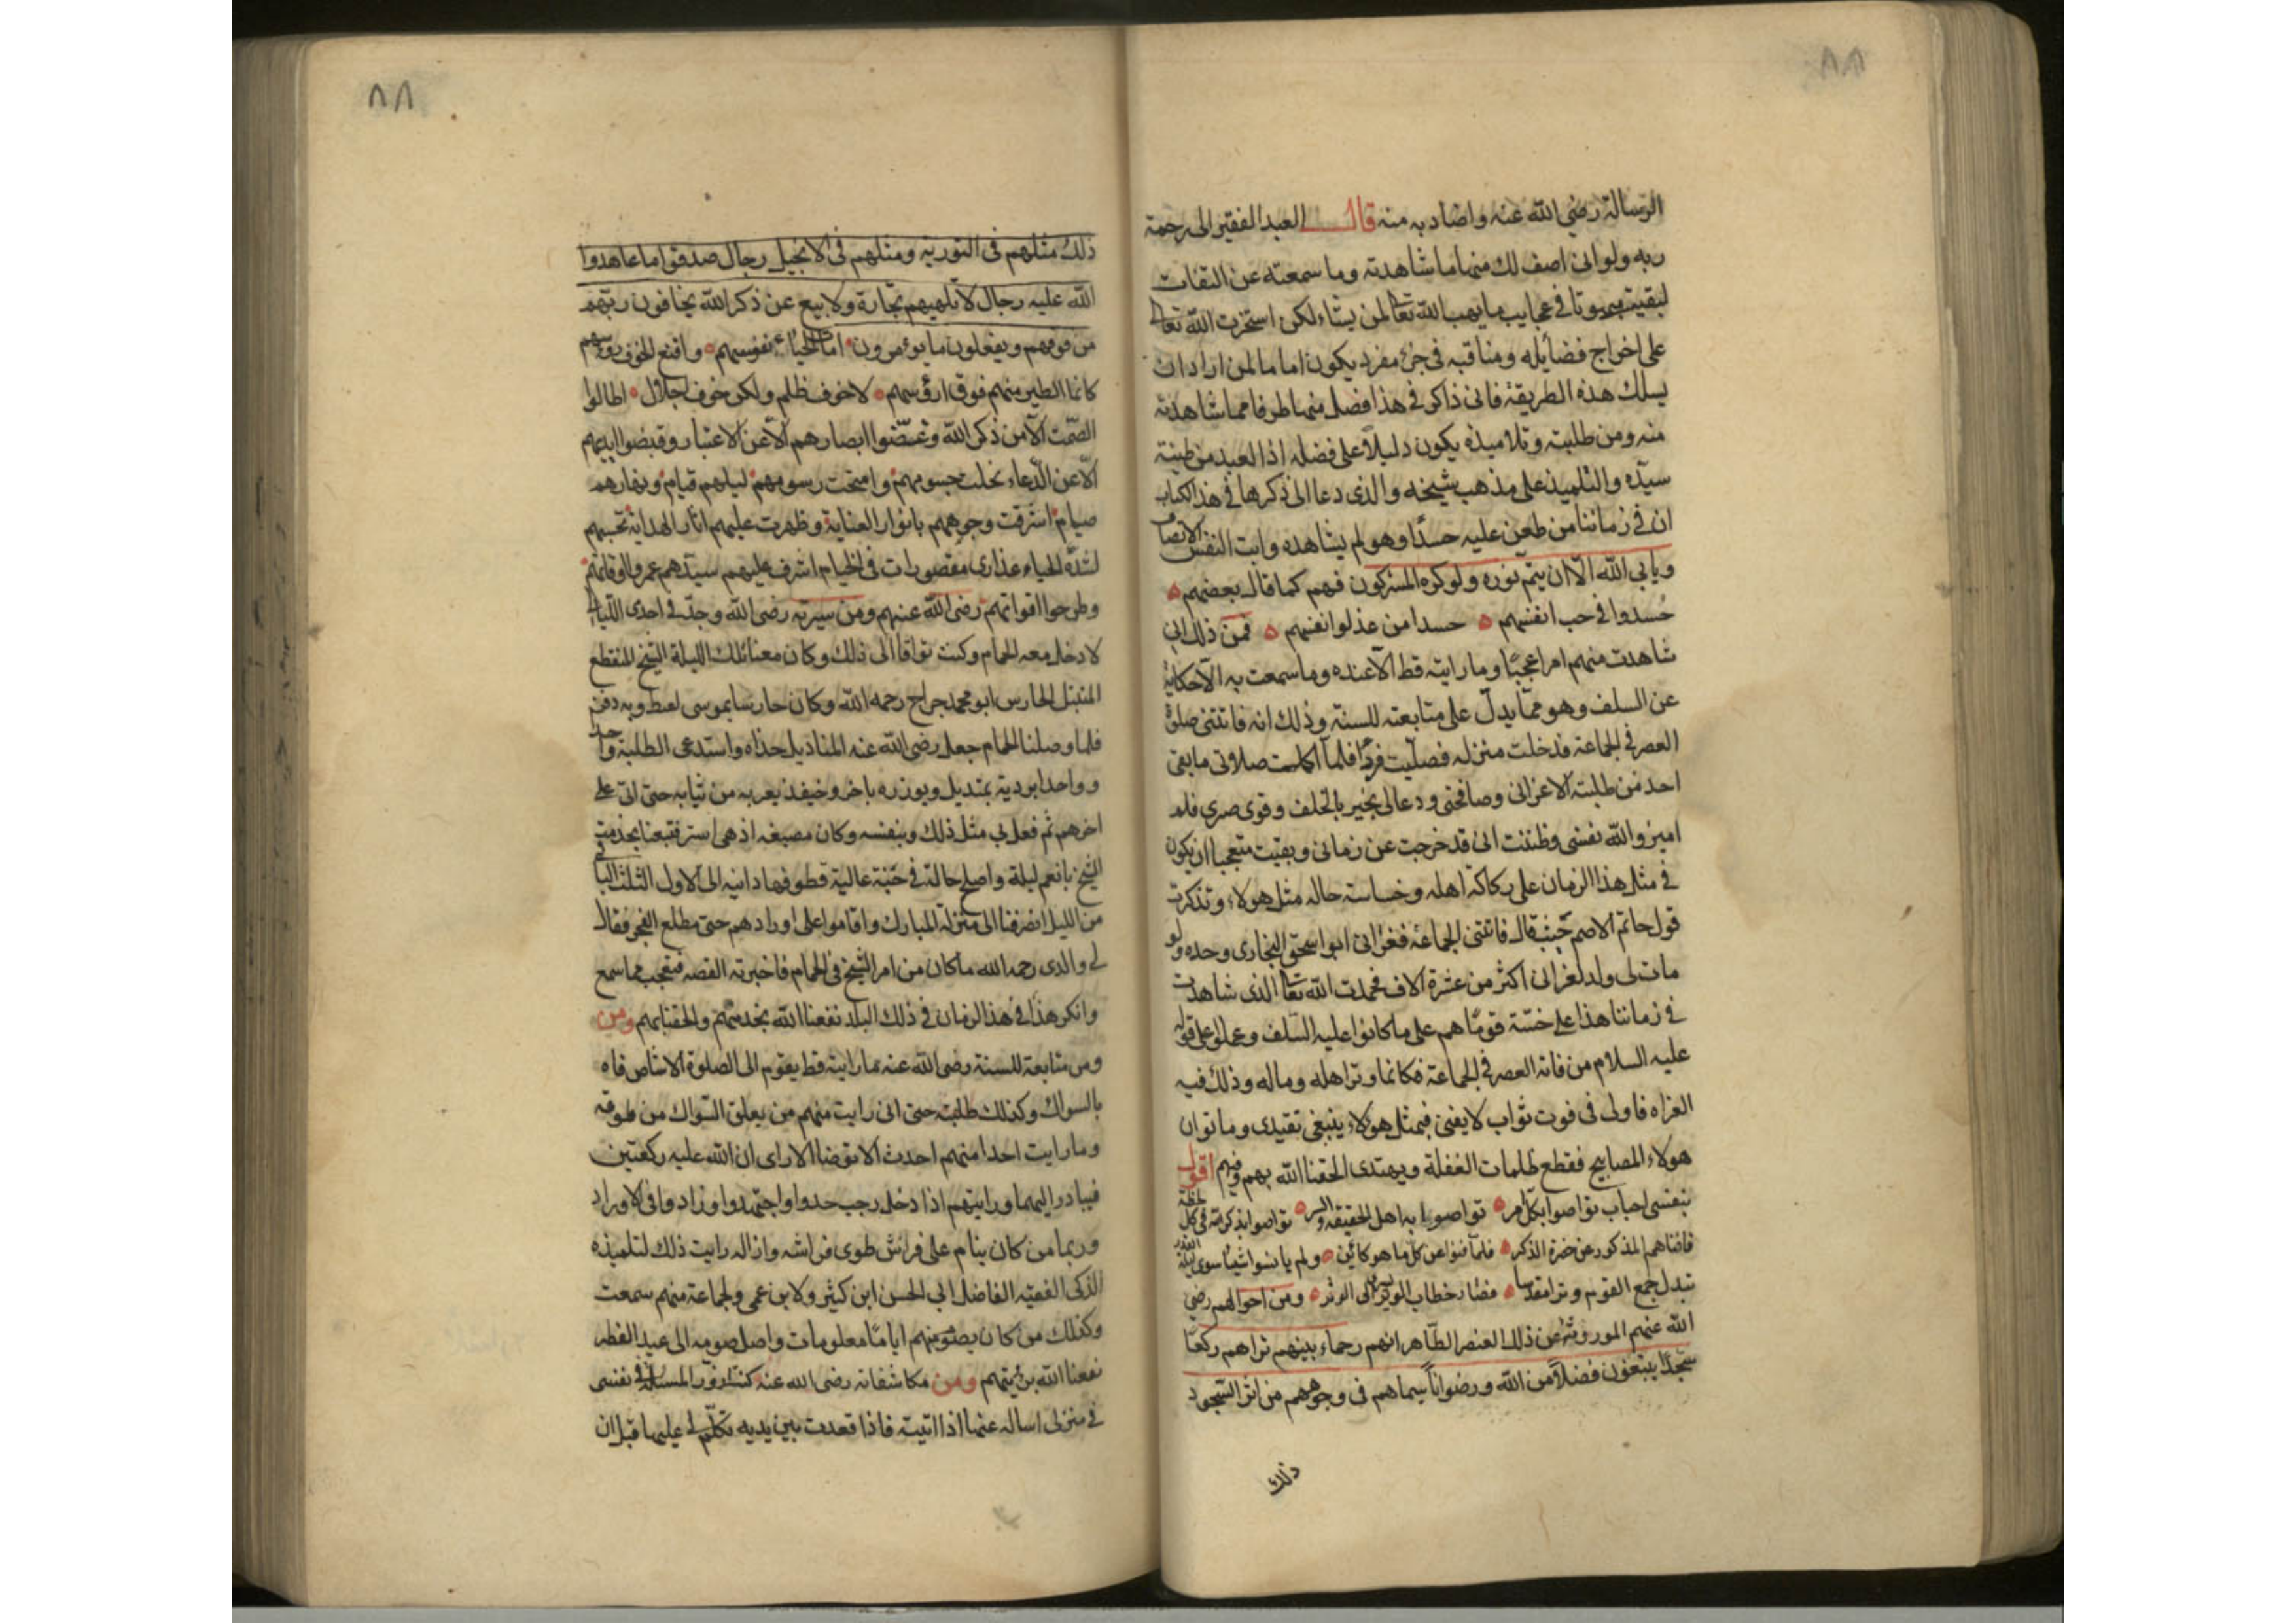 ٨٨
الرسالة رضي الله عنه واضاد به منه قال العبد الفقير الى رحمة
ربه ولو انى اصف لك منها ما شاهدته وما سمعته عن الثقات
لبقيت مبهوتا في عجايب ما يهب الله تعالى لمن يشاء لكن استخرت الله تعالى
على اخراج فضائله ومناقبه في جزء مفرد يكون اماما لمن اراد ان
يسلك هذه الطريقة فانى ذاكر في هذا فصل منها طرفا مما شاهدته
منه ومن طلبته وتلاميذه يكون دليلا على فضله اذ العبد من طينة
سيده والتلميذ على مذهب شيخه والذى دعا الى ذكرها في هذا الكتاب
ان في زماننا من طعن عليه حسدا وهو لم يشاهده وابت النفس الانصاف
ويابي الله الا ان يتم نوره ولو كره المشركون فهم كما قال بعضهم
حسدوا في حب انفسهم حسدا من عذلوا انفسهم فمن ذلك انى
شاهدت منهم امرا عجبا وما رايته قط الا عنده وما سمعت به الا حكاية
عن السلف وهو مما يدل على متابعته للسنة وذلك انه فاتتنى صلوة
العصر في الجماعة فدخلت منزله فصليت فردا فلما اكملت صلاتى ما بقى
احد من طلبته الا عزانى وصافحنى ودعا لى بخير بالخلف وقوى صبرى فلم
اميز والله نفسى وظننت انى قد خرجت عن زمانى وبقيت متعجبا ان يكون
في مثل هذا الزمان على ركاكة اهله وخساسة حاله مثل هولاء وتذكرت
قول حاتم الاصم حيث قال فاتتنى الجماعة فعزانى ابو اسحق البخارى وحده ولو
مات لى ولد لعزانى اكثر من عشرة الاف فحمدت الله تعالى الذى شاهدت
في زماننا هذا على خسته قوما هم على ما كانوا عليه السلف وعملوا على قوله
عليه السلام من فاته العصر في الجماعة فكانما وتر اهله وماله وذلك فيه
العزاه فاولى في فوت ثواب لا يفنى فبمثل هولاء ينبغى تقتدى وما نوان
هولاء المصابيح فقطع ظلمات الغفلة ويهتدى الحقنا الله بهم وفيهم اقول
بنفسى احباب تواصوا بكل امر تواصوا به اهل الحقيقة والسر تواصوا بذكر الله في كل لحظة
فافناهم المذكور عن حضرة الذكر فلما فنوا عن كل ما هو كائن ولم يانسوا شيئا سوى
تبدل جمع القوم وترا مقدسا فصار خطاب الوتر الى الوتر ومن احوالهم رضى
الله عنهم الموروثة عن ذلك العنصر الطاهر انهم رحماء بينهم تراهم ركعا
سجدا يبتغون فضلا من الله ورضوانا سيماهم في وجوههم من اثر السجود
ذلك
٨٨
ذلك مثلهم في التورية ومثلهم في الانجيل رجال صدقوا ما عاهدوا
الله عليه رجال لا تلهيهم تجارة ولا بيع عن ذكر الله يخافون ربهم
من فوقهم ويفعلون ما يومرون امات الحياء نفوسهم واقنع الخوف روسهم
كانما الطير منهم فوق ارؤسهم لا خوف ظلم ولكن خوف اجلال اطالوا
الصمت الا من ذكر الله وغضوا ابصارهم الا عن الاعتبار وقبضوا ايديهم
الا عن الدعاء نحلت جسومهم وامتحت رسومهم ليلهم قيام ونهارهم
صيام اشرقت وجوههم بانوار العناية وظهرت عليهم اثار الهداية تحسبهم
لشدة الحياء عذارى مقصورات في الخيام اشرف عليهم سيدهم عمروا اوقاتهم
وطرحوا اقواتهم رضى الله عنهم ومن سيرته رضى الله وجد في احدى الليالى
لادخل معه الحمام وكنت تواقا الى ذلك وكان معنا تلك الليلة الشيخ المنقطع
المتبتل الحارس ابو محمد جراح رحمه الله وكان حارسا بموسى وبه دفن
فلما وصلنا الحمام جعل رضى الله عنه المناديل حذاه واستدعى الطلبة واحدا
وواحدا يرديه بمنديل ويوزره باخر وحينئذ يعريه من ثيابه حتى اتى على
اخرهم ثم فعل بى مثل ذلك وبنفسه وكان اذ هى استر فتبعنا بخدمة
الشيخ بانعم ليلة واصلح حالة في جنة عالية قطوفها دانية الى الاول الثلث الباقى
من الليل انصرفنا الى منزله المبارك واقاموا على اورادهم حتى مطلع الفجر فقال
لى والدى رحمه الله ما كان من امر الشيخ في الحمام فاخبرته القصه فتعجب مما سمع
وانكر هذا في هذا الزمان في ذلك البلد نفعنا الله بخدمتهم والحقنا بهم ومن
ومن متابعة للسنة رضى الله عنه ما رايته قط يقوم الى الصلوة الا شاص فاه
بالسواك وكذلك طلبته حتى انى رايت منهم من يعلق السواك من طوقه
وما رايت احدا منهم احدث الا توضا الا راى ان الله عليه ركعتين
فيبادر اليهما ورايتهم اذا دخل رجب جدوا واجتهدوا وزادوا في الاوراد
وربما من كان ينام على فراش طوى فراشه وازاله رايت ذلك لتلميذه
الذكى الفقيه الفاضل ابى الحسن ابن كثير ولابن عمى ولجماعة منهم سمعت
وكذلك من كان يصوم منهم اياما معلومات واصل صومه الى عيد الفطر
نفعنا الله برؤيتهم ومن مكاشفاته رضى الله عنه كنت ازور المسئلة في نفسى
في منزلى اساله عنها اذا اتيته فاذا قعدت بين يديه تكلم لى عليها قبل ان